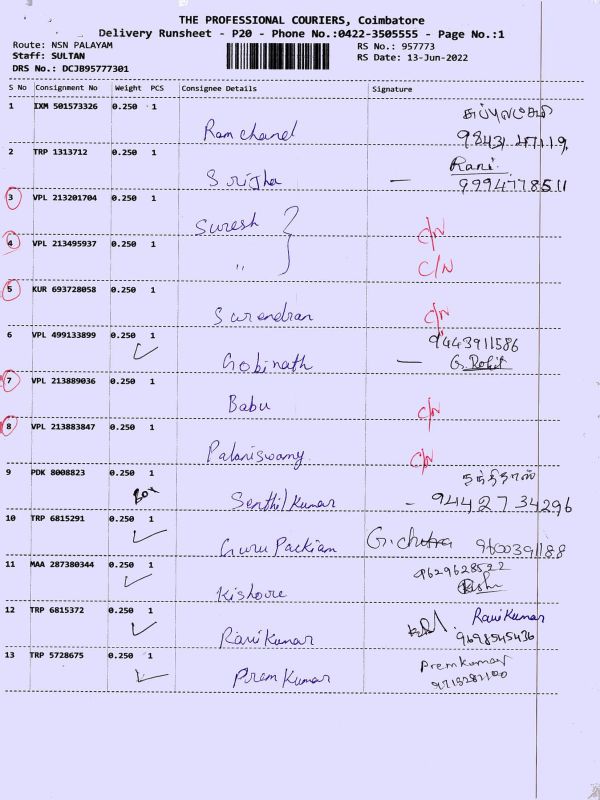 THE PROFESSIONAL COURIERS, Coimbatore
Delivery Runsheet - P20 - Phone No.:0422-3505555 - Page No.:1
Route: NSN PALAYAM
Staff: SULTAN
DRS No.: DCJB95777301
RS No.: 957773
RS Date: 13-Jun-2022
S No Consignment No Weight PCS Consignee Details Signature
1 IXM 501573326 0.250 1
Ram chand 98431 47119
2 TRP 1313712 0.250 1 Rani
Srijha — 9994778511
3 VPL 213201704 0.250 1
Suresh C/N
4 VPL 213495937 0.250 1
" C/N
5 KUR 693728058 0.250 1
Surendran C/N
6 VPL 499133899 0.250 1 9443911586
Gobinath — G. Rohit
7 VPL 213889036 0.250 1
Babu C/N
8 VPL 213883847 0.250 1
Palaniswamy. C/N
9 PDK 8008823 0.250 1
Box Senthil Kumar - 94427 34296
10 TRP 6815291 0.250 1
Guru Packiam G. chitra 9600391188
11 MAA 287380344 0.250 1 9629628522
Kishore
12 TRP 6815372 0.250 1 RaviKumar
RaviKumar 9698545436
13 TRP 5728675 0.250 1 Premkumar
PremKumar